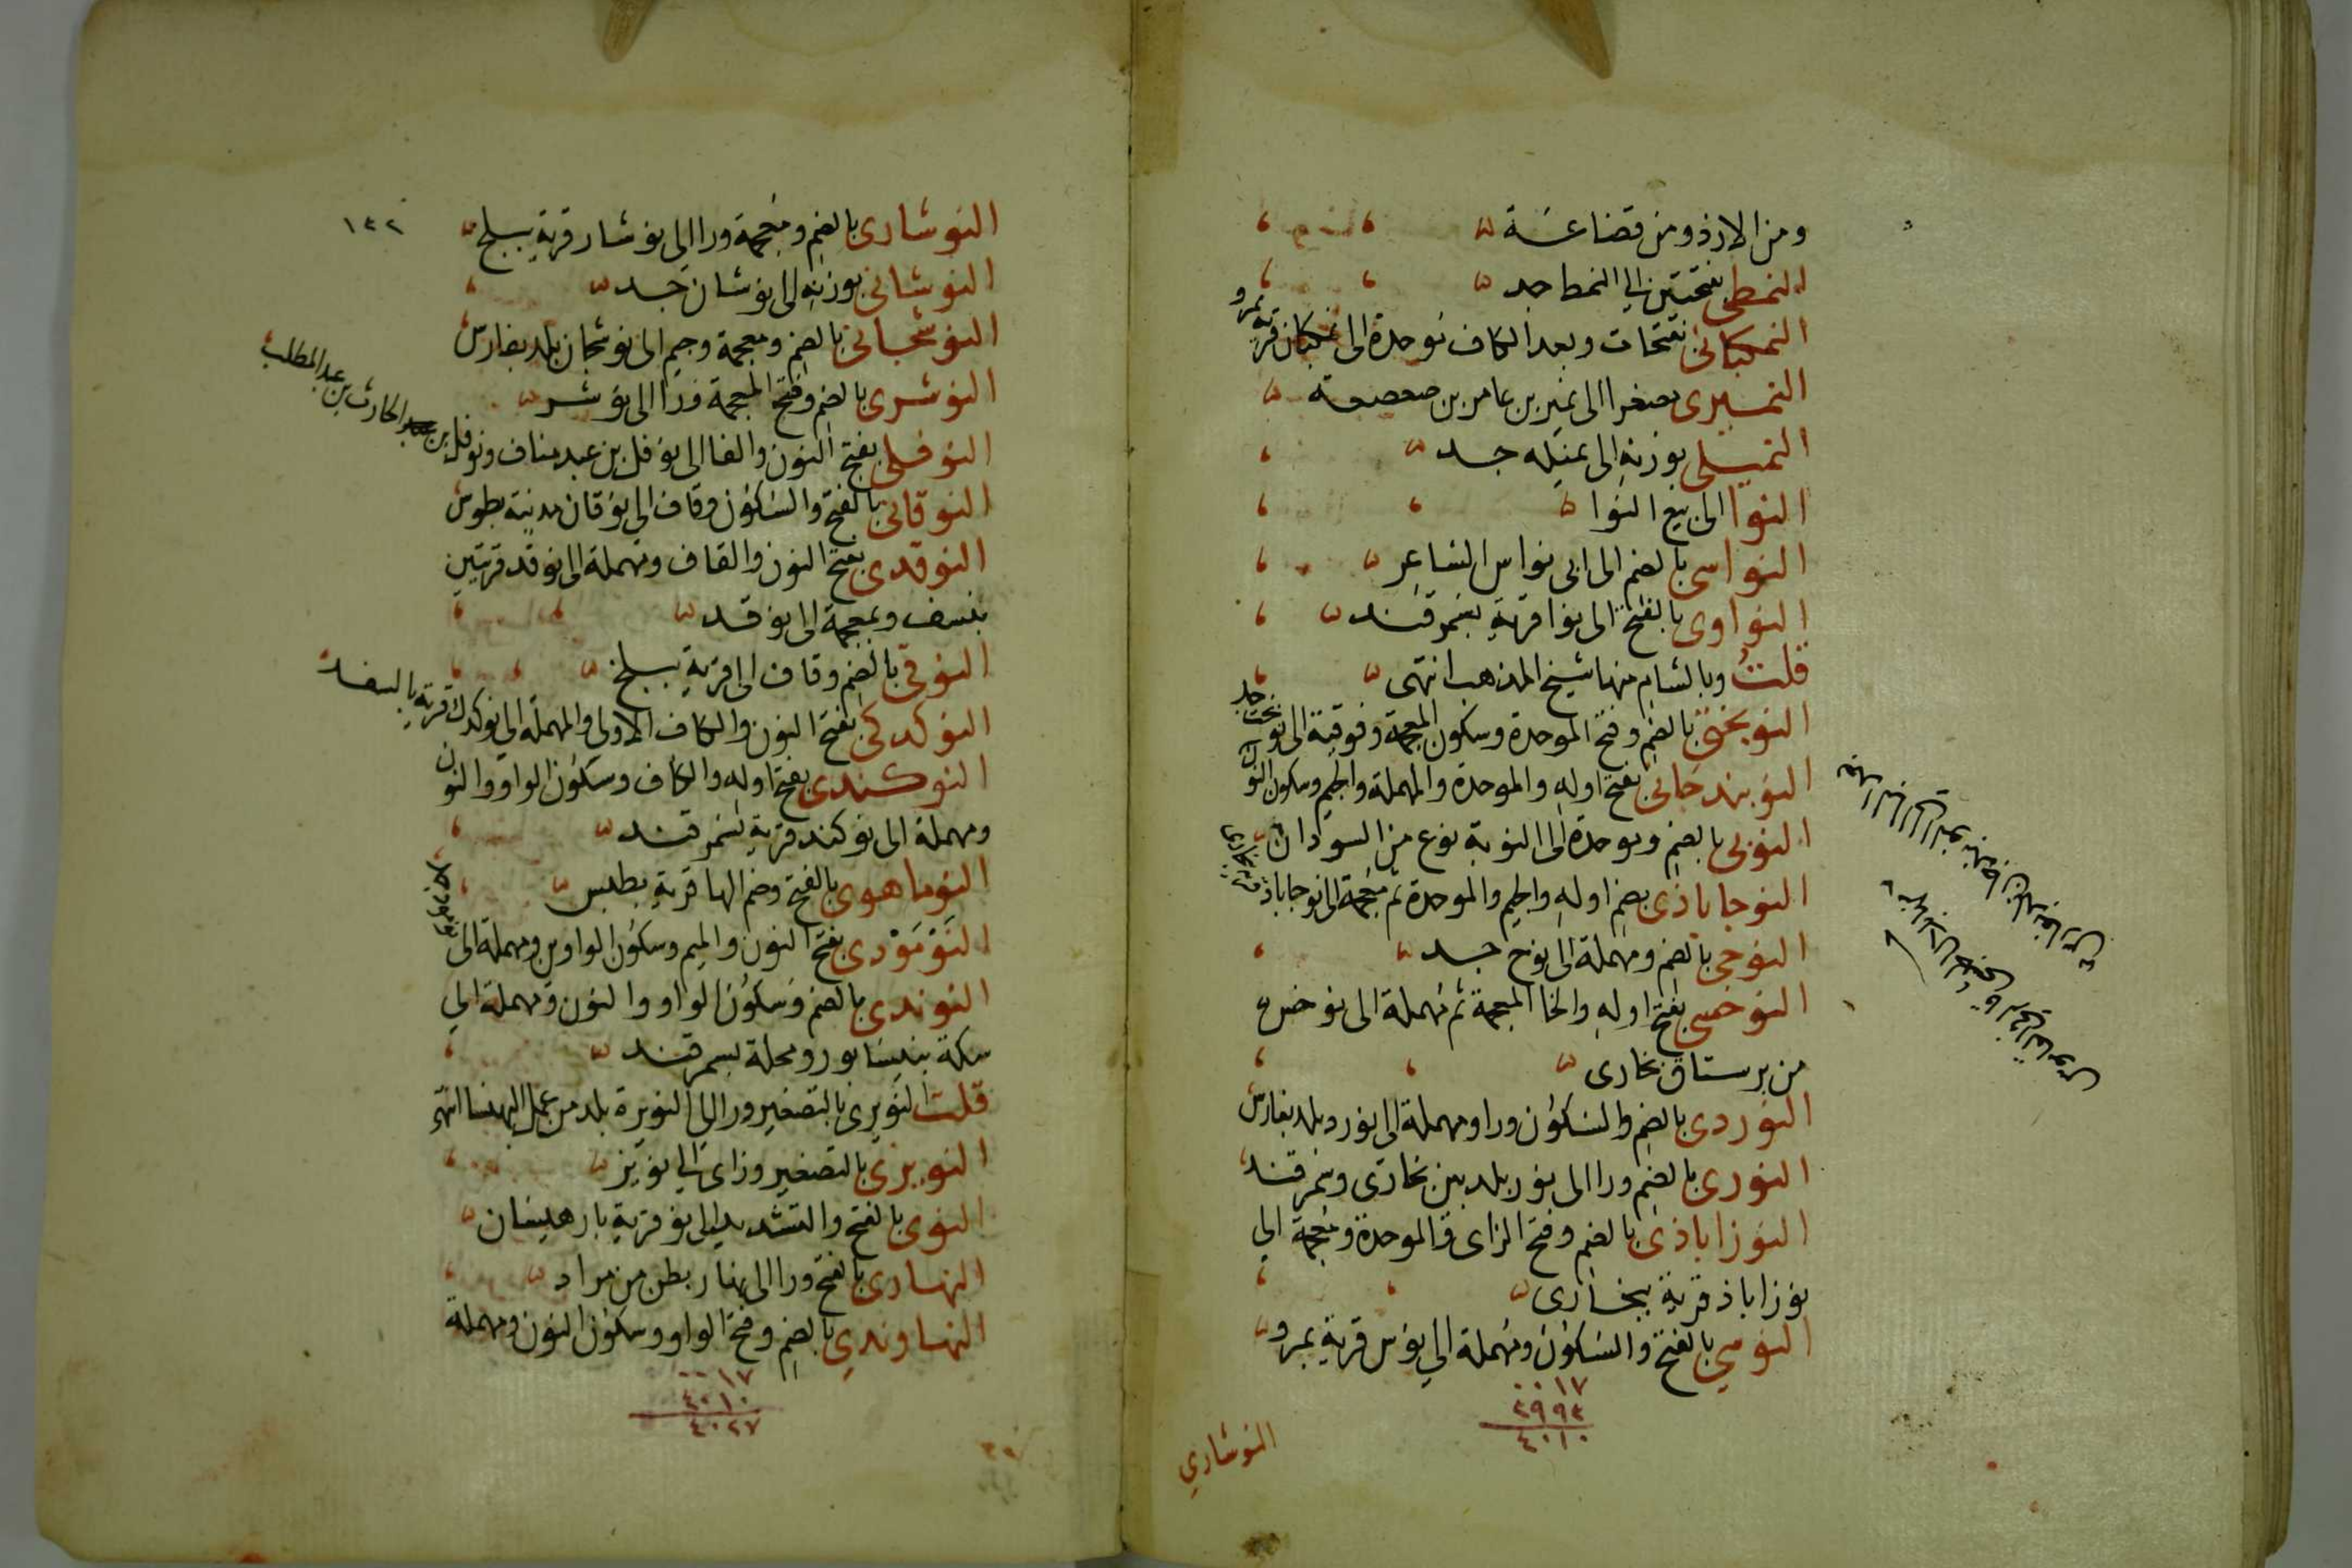 ومن الازد ومن قضاعة
النمطي بفتحتين الى النمط جد
النمكباني بفتحات وبعد الكاف موحدة الى نمكبان قرية بمرو
النميري مصغرا الى نمير بن عامر بن صعصعة
النميلي بوزنه الى نميله جد
النوا الى بيع النوا
النواسي بالضم الى ابى نواس الشاعر
النواوى بالفتح الى نوا قرية بسمرقند
قلت وبالشام منها شيخ المذهب انتهى
النوبختي بالضم وفتح الموحدة وسكون المعجمة وفوقية الى نوبخت جد
النوبندجاني بفتح اوله والموحدة والمهملة والجيم وسكون النون
الى نوبندجان بلد بفارس
النوبي بالضم وموحدة الى النوبة نوع من السودان
النوجاباذى بضم اوله والجيم والموحدة ثم معجمة الى نوجاباذ قرية ببخارى
النوحي بالضم ومهملة الى نوح جد
النوخسي بفتح اوله والخا المعجمة ثم مهملة الى نوخس
من برستاق بخارى
النوردى بالضم والسكون ورا ومهملة الى نورد بلد بفارس
النورى بالضم ورا الى نور بلد بين بخارى وسمرقند
النوزاباذى بالضم وفتح الزاى والموحدة ومعجمة الى
نوزاباذ قرية ببخارى
النوسي بالفتح والسكون ومهملة الى نوس قرية بمرو
٠٠١٧
٣٩٩٣
٤٠١٠
النوشاري
١٤٢
النوشارى بالضم ومعجمة ورا الى نوشار قرية ببلخ
النوشانى بوزنه الى نوشان جد
النوشجانى بالضم ومعجمة وجيم الى نوشجان بلد بفارس
النوشرى بالضم وفتح المعجمة ورا الى نوشر
النوفلى بفتح النون والفا الى نوفل بن عبد مناف ونوفل بن الحارث بن عبد المطلب
النوقانى بالفتح والسكون وقاف الى نوقان مدينة بطوس
النوقدى بفتح النون والقاف ومهملة الى نوقد قريتين
بنسف وبمعجمة الى نوقد
النوقى بالضم وقاف الى قرية ببلخ
النوكدكى بفتح النون والكاف الاولى والمهملة الى نوكدك قرية بالسغد
النوكندى بفتح اوله والكاف وسكون الواو والنون
ومهملة الى نوكند قرية بسمرقند
النوماهوى بالفتح وضم الها قرية بطبس
النَوْمَوْدى بفتح النون والميم وسكون الواوين ومهملة الى
النوندى بالضم وسكون الواو والنون ومهملة الى
سكة بنيسابور ومحلة بسمرقند
قلت النويرى بالتصغير ورا الى النويرة بلد من عمل البهنسا انتهى
النويزى بالتصغير وزاى الى نويز
النوى بالفتح والتشديد الى نو قرية بارهسان
النهارى بالفتح ورا الى نهار بطن من مراد
النهاوندى بالضم وفتح الواو وسكون النون ومهملة
٠٠١٧
٤٠١٠
٤٠٢٧